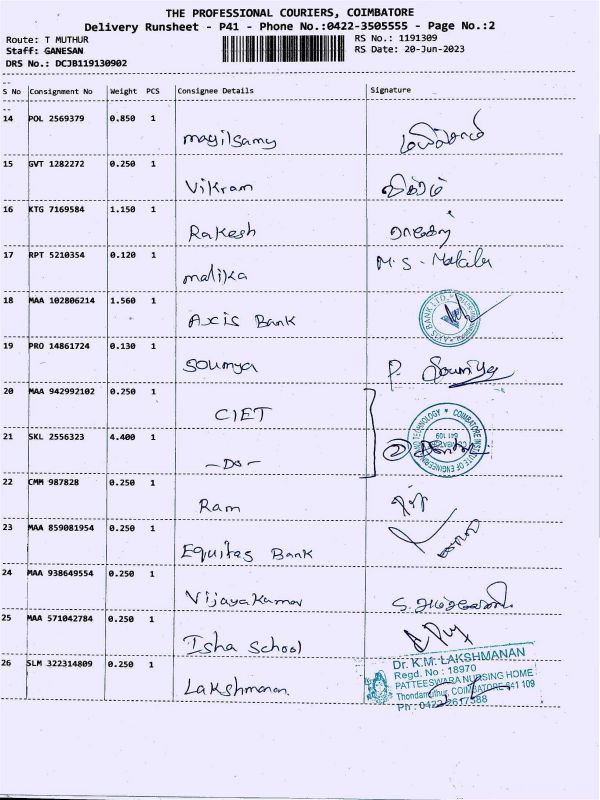 THE PROFESSIONAL COURIERS, COIMBATORE
Delivery Runsheet - P41 - Phone No.:0422-3505555 - Page No.:2
Route: T MUTHUR RS No.: 1191309
Staff: GANESAN RS Date: 20-Jun-2023
DRS No.: DCJB119130902
S No Consignment No Weight PCS Consignee Details Signature
14 POL 2569379 0.850 1
magilsamy
15 GVT 1282272 0.250 1
Vikram
16 KTG 7169584 1.150 1
Rakesh
17 RPT 5210354 0.120 1
malika M.S.
18 MAA 102806214 1.560 1
Axis Bank AXIS BANK LTD.
19 PRO 14861724 0.130 1
Soumya P. Soumiya
20 MAA 942992102 0.250 1
CIET COIMBATORE INSTITUTE OF ENGINEERING AND TECHNOLOGY
COIMBATORE
641 109
21 SKL 2556323 4.400 1
-Do-
22 CMM 987828 0.250 1
Ram
23 MAA 859081954 0.250 1
Equitas Bank
24 MAA 938649554 0.250 1
Vijayakumar
25 MAA 571042784 0.250 1
Isha School
26 SLM 322314809 0.250 1
Lakshmanan
Dr. K.M. LAKSHMANAN
Regd. No : 18970
PATTEESWARA NURSING HOME
Thondamuthur, COIMBATORE-641 109
Ph : 0422-2617588